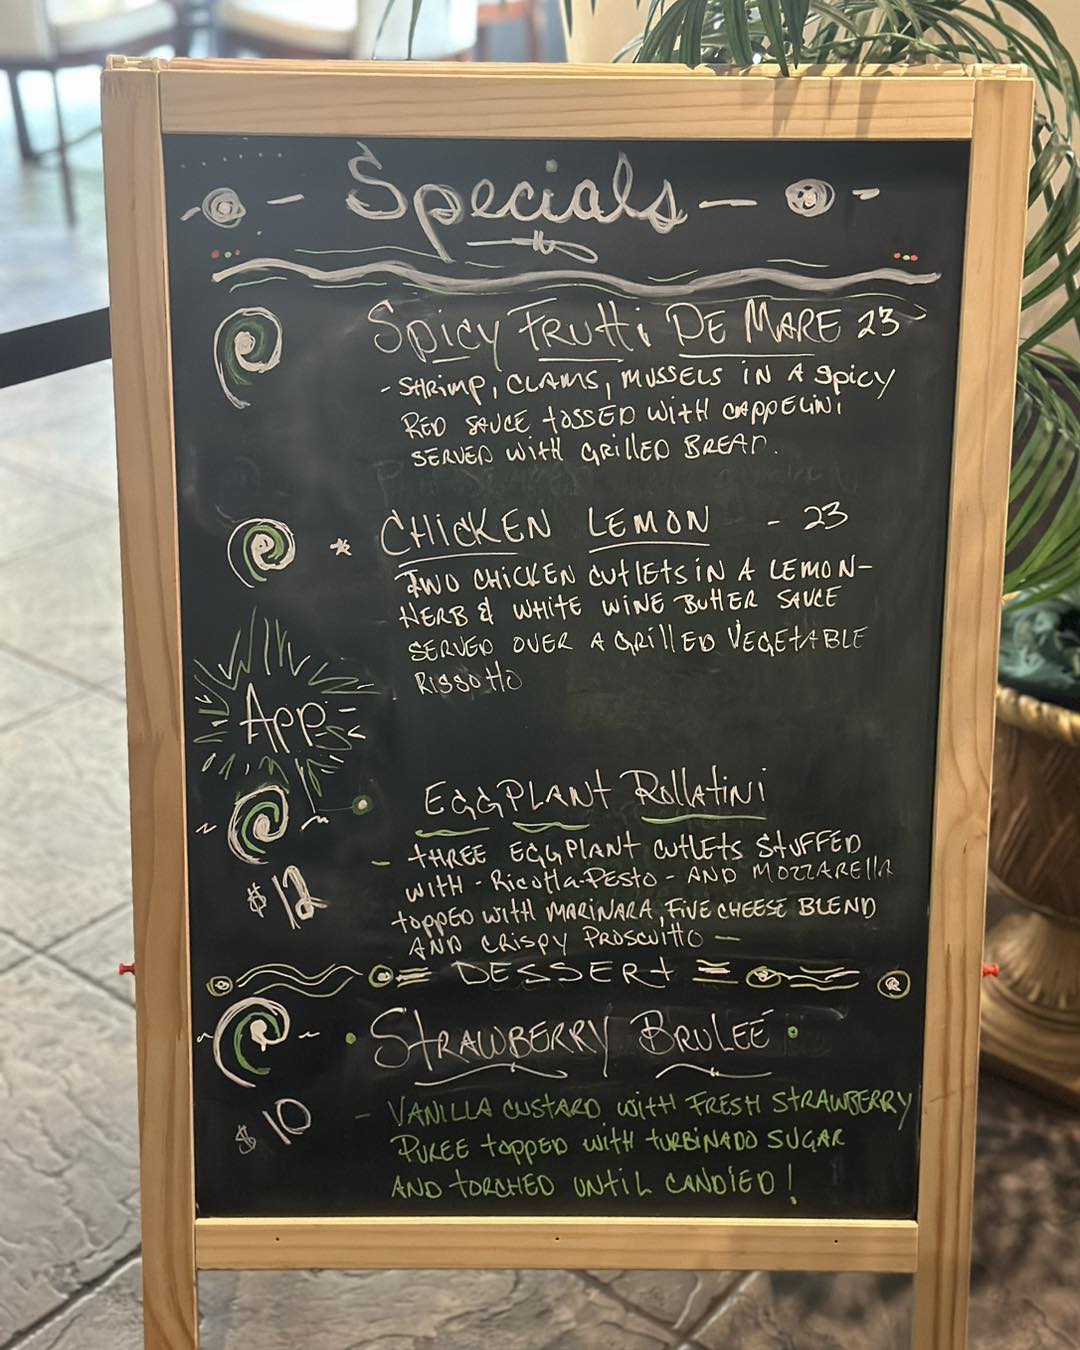 Specials
Spicy Frutti De Mare 23
- Shrimp, clams, mussels in a spicy
red sauce tossed with cappelini
served with grilled bread.
Chicken Lemon - 23
Two chicken cutlets in a lemon-
herb & white wine butter sauce
served over a grilled vegetable
rissotto
App
Eggplant Rollatini
- three eggplant cutlets stuffed
with - Ricotta-Pesto - and mozzarella
$12
topped with marinara, five cheese blend
and crispy proscuitto -
= Dessert =
Strawberry Bruleé
$10
- Vanilla custard with fresh strawberry
puree topped with turbinado sugar
and torched until candied!